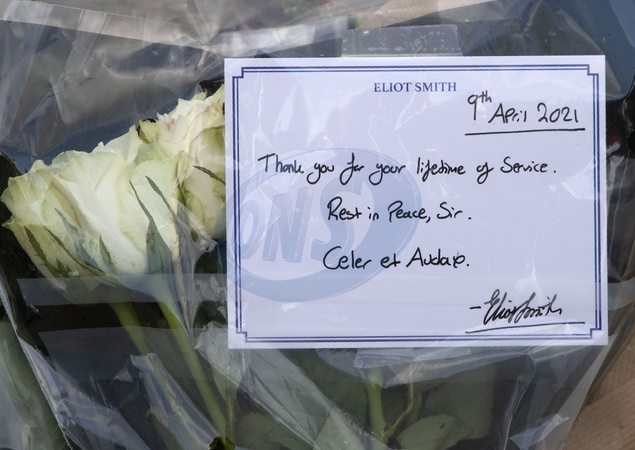 ELIOT SMITH
9th April 2021
Thank you for your lifetime of Service.
Rest in Peace, Sir.
Celer et Audax.
-Eliot Smith